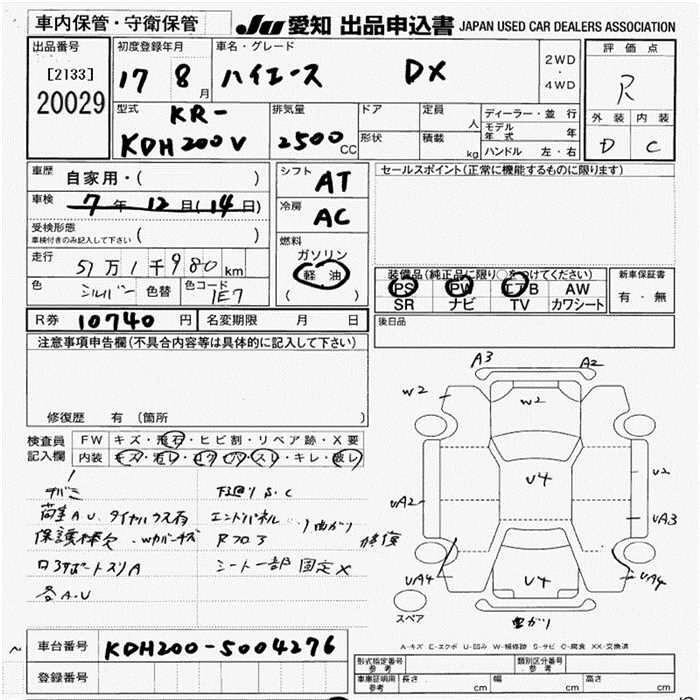 車内保管・守衛保管 JU 愛知 出品申込書 JAPAN USED CAR DEALERS ASSOCIATION
出品番号 初度登録年月 車名・グレード 2WD ・ 4WD 評価点
[2133] 17 8月 ハイエース DX R
20029
型式 KR- 排気量 ドア 定員 人 ディーラー・並行 外装 内装
KDH200V 2500CC 形状 積載 kg モデル年式 年 D C
ハンドル 左・右
車歴 自家用・( ) シフト AT セールスポイント(正常に機能するものに限ります)
車検 7年12月(14日) 冷房 AC
受検形態 ( )
車検付きのみ記入して下さい
燃料
ガソリン
走行 51万1千980km 軽油
色 シルバー 色替 色コード 1E7 ( )
装備品(純正品に限り○をつけてください) 新車保証書
PS PW エアB AW 有・無
SR ナビ TV カワシート
R券 10740円 名変期限 月 日 後日品
注意事項申告欄(不具合内容等は具体的に記入して下さい)
修復歴 有 (箇所 )
検査員 FW キズ・飛石・ヒビ割・リペア跡・X要
記入欄 内装 キズ・汚レ・コゲ・穴・スレ・キレ・破レ
下廻りS.C
荷室A.U タイヤハウス有 エンドパネル 曲がり
保護棒欠 Rフロア 修復
シート一部固定X
各A.U
A3 A2
W2 W2
U4 U2
UA2 UA3
UA4 U4 UA4
スペア 曲がり
A-キズ E-エクボ U-凹み W-補修跡 S-サビ C-腐食 XX-交換済
車台番号 KDH200-5004276
登録番号
形式指定番号 参考 類別区分番号 参考
車庫証明用 参考 長さ cm 幅 cm 高さ cm